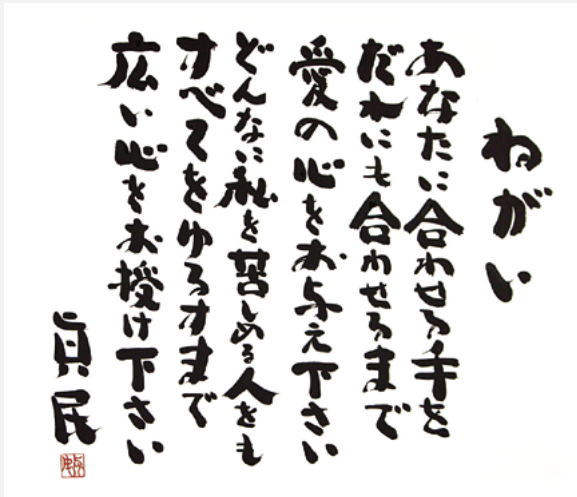 ねがい
あなたに合わせる手を
だれにも合わせるまで
愛の心をお与え下さい
どんなに私を苦しめる人をも
すべてをゆるすまで
広い心をお授け下さい
真民